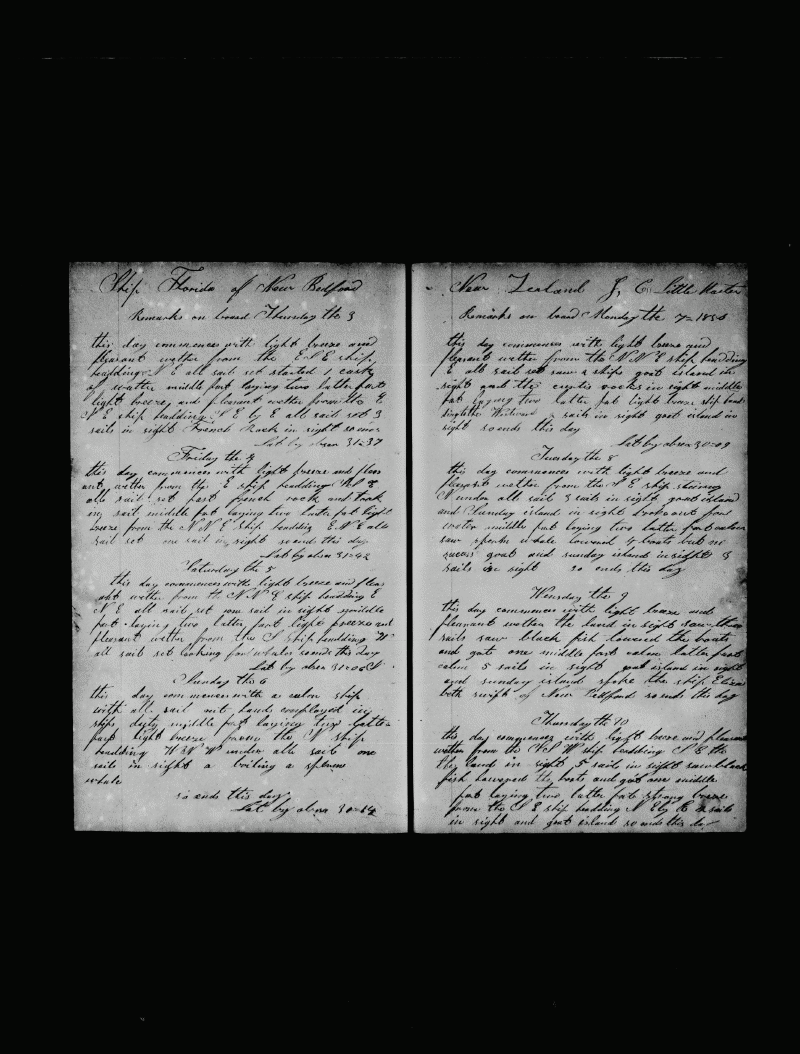 Ship Florida of New Bedford
Remarks on board Thursday the 3
this day commences with light breeze and
pleasant wether from the E S E ship
heading N E all sail set started 1 cask
of watter middle part laying two latter part
light breeze and pleasant wether from the E
S E ship heading N E by E all sail set 3
sails in sight French Rock in sight so ends
Lat by obser 31=37
Friday the 4
this day commences with light breeze and pleas
ant wether from the E ship heading
all sail set past french rock and took
in sail middle part laying two latter part light
breeze from the N N E ship heading E N E all
sail set one sail in sight so end this day
Lat by obser 31=42
Saturday the 5
this day commences with light breeze and pleas
ant wether from the N N E ship heading E
N E all sail set one sail in sight middle
part laying two latter part light breeze and
pleasant wether from the S ship heading W
all sail set looking for whales so ends this day
Lat by obser 31=06 S
Sunday the 6
this day commences with a calm ship
with all sail out hands employed in
ships duty middle part laying two latter
part light breeze from the N ship
heading W N W under all sail one
sail in sight a boiling a sperm
whale
so ends this day
Lat by obser 30=54
New Zealand J, C, Little Master
Remarks on board Monday the 7= 1850
this day commences with light breeze and
pleasant wether from the N N E ship heading
E all sail set saw 2 ships goat island in
sight and the curtis rocks in sight middle
part laying two latter part light breeze ship head
ing the Westward sails in sight goat island in
sight so ends this day
Lat by obser 30=09
Tuesday the 8
this day commences with light breeze and
pleasant wether from the S E ship steering
N under all sail 3 sails in sight goat island
and Sunday island in sight broke out for
water middle part laying two latter part calm
saw sperm whale lowered 4 boats but no
success goat and sunday island in sight 3
sails in sight so ends this day
Wensday the 9
this day commences with light breeze and
pleasant wether the land in sight saw three
sails saw black fish lowered the boats
and got one middle part calm latter part
calm 5 sails in sight goat island in sight
and sunday island spoke the ship Eliza
beth swift of New Bedford so ends the day
Thursday the 10
this day commences with light breeze and pleasant
wether from the W ship heading S E the
the land in sight 5 sails in sight saw black
fish lowered the boats and got one middle
part laying two latter part strong breeze
from the S E ship heading N E by E sails
in sight and goat island so ends this day